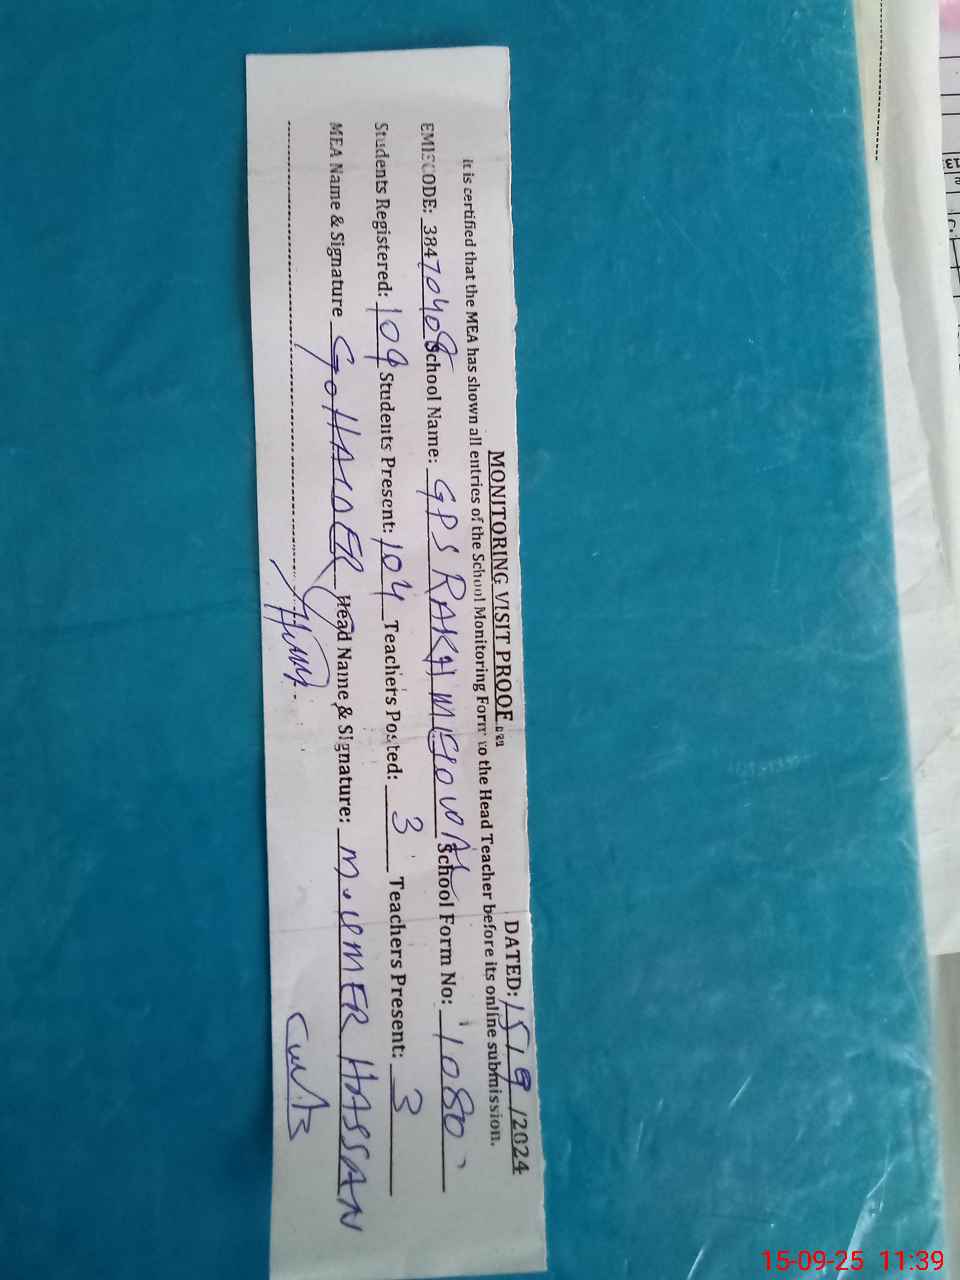 MONITORING VISIT PROOF DATED: 15/9/2024
It is certified that the MEA has shown all entries of the School Monitoring Form to the Head Teacher before its online submission.
EMISCODE: 38470408 School Name: GPS RAKH MIGOWAL School Form No: 1080
Students Registered: 109 Students Present: 104 Teachers Posted: 3 Teachers Present: 3
MEA Name & Signature GO HAIDER Head Name & Signature: M. UMER HASSAN
15-09-25 11:39